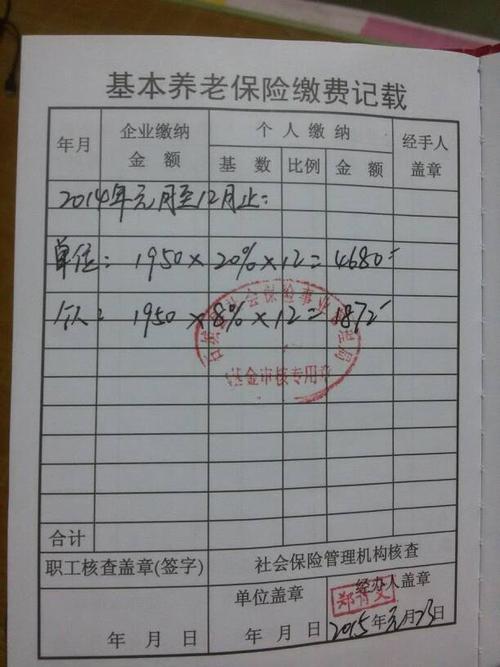 基本养老保险缴费记载
年月 企业缴纳金额 个人缴纳 经手人盖章
基数 比例 金额
2014年元月至12月止:
单位: 1950×20%×12=4680
个人: 1950×8%×12=1872
基金审核专用章
合计
职工核查盖章(签字) 社会保险管理机构核查
单位盖章 经办人盖章
年 月 日 2015年元月23日